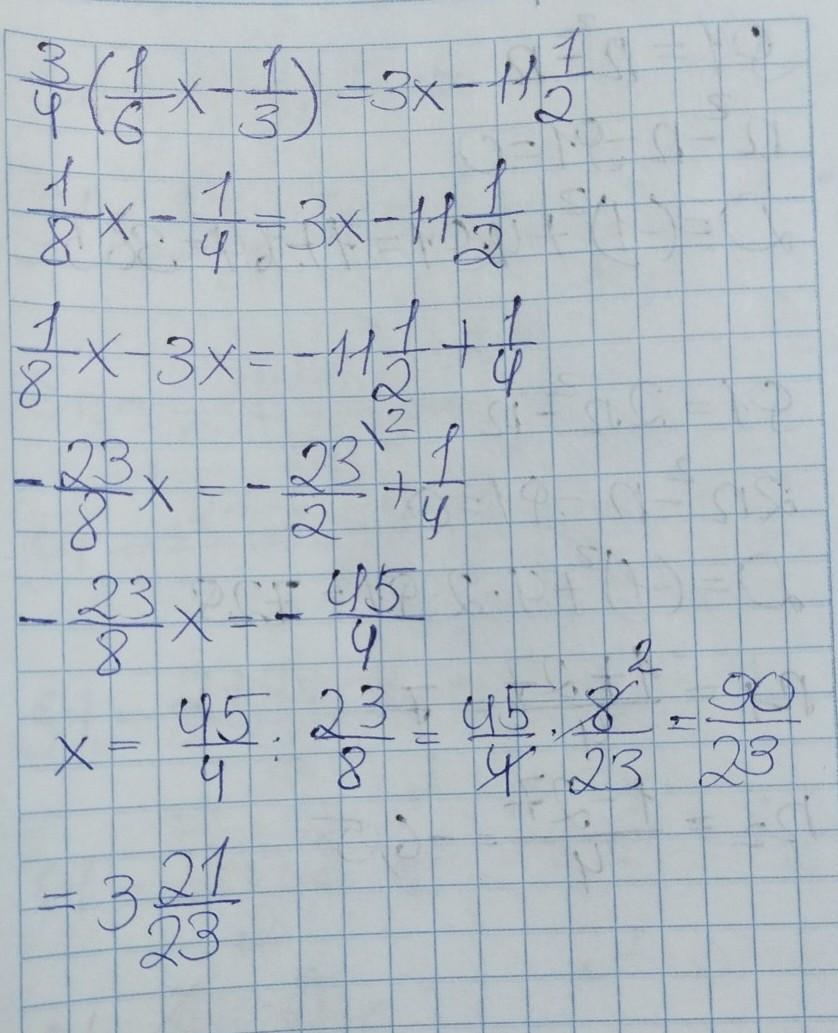 3/4 (1/6 x - 1/3) = 3x - 11 1/2
1/8 x - 1/4 = 3x - 11 1/2
1/8 x - 3x = - 11 1/2 + 1/4
- 23/8 x = - 23/2 \2 + 1/4
- 23/8 x = - 45/4
x = 45/4 : 23/8 = 45/4 · 8/23 2 = 90/23
= 3 21/23